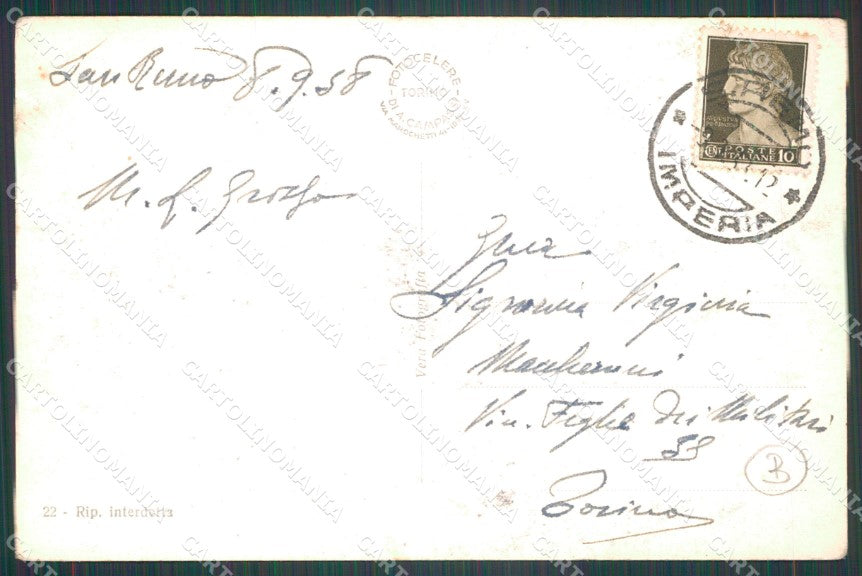 San Remo 8.9.38
FOTOCELERE
TORINO
DI A. CAMPASSI
POSTE
ITALIANE 10
CENT
IMPERIA
Gent.
Signorina Virginia
Via Figlie Dei Militari
53
Torino
B
Vera Fotografia
22 - Rip. interdetta
CARTOLINOMANIA